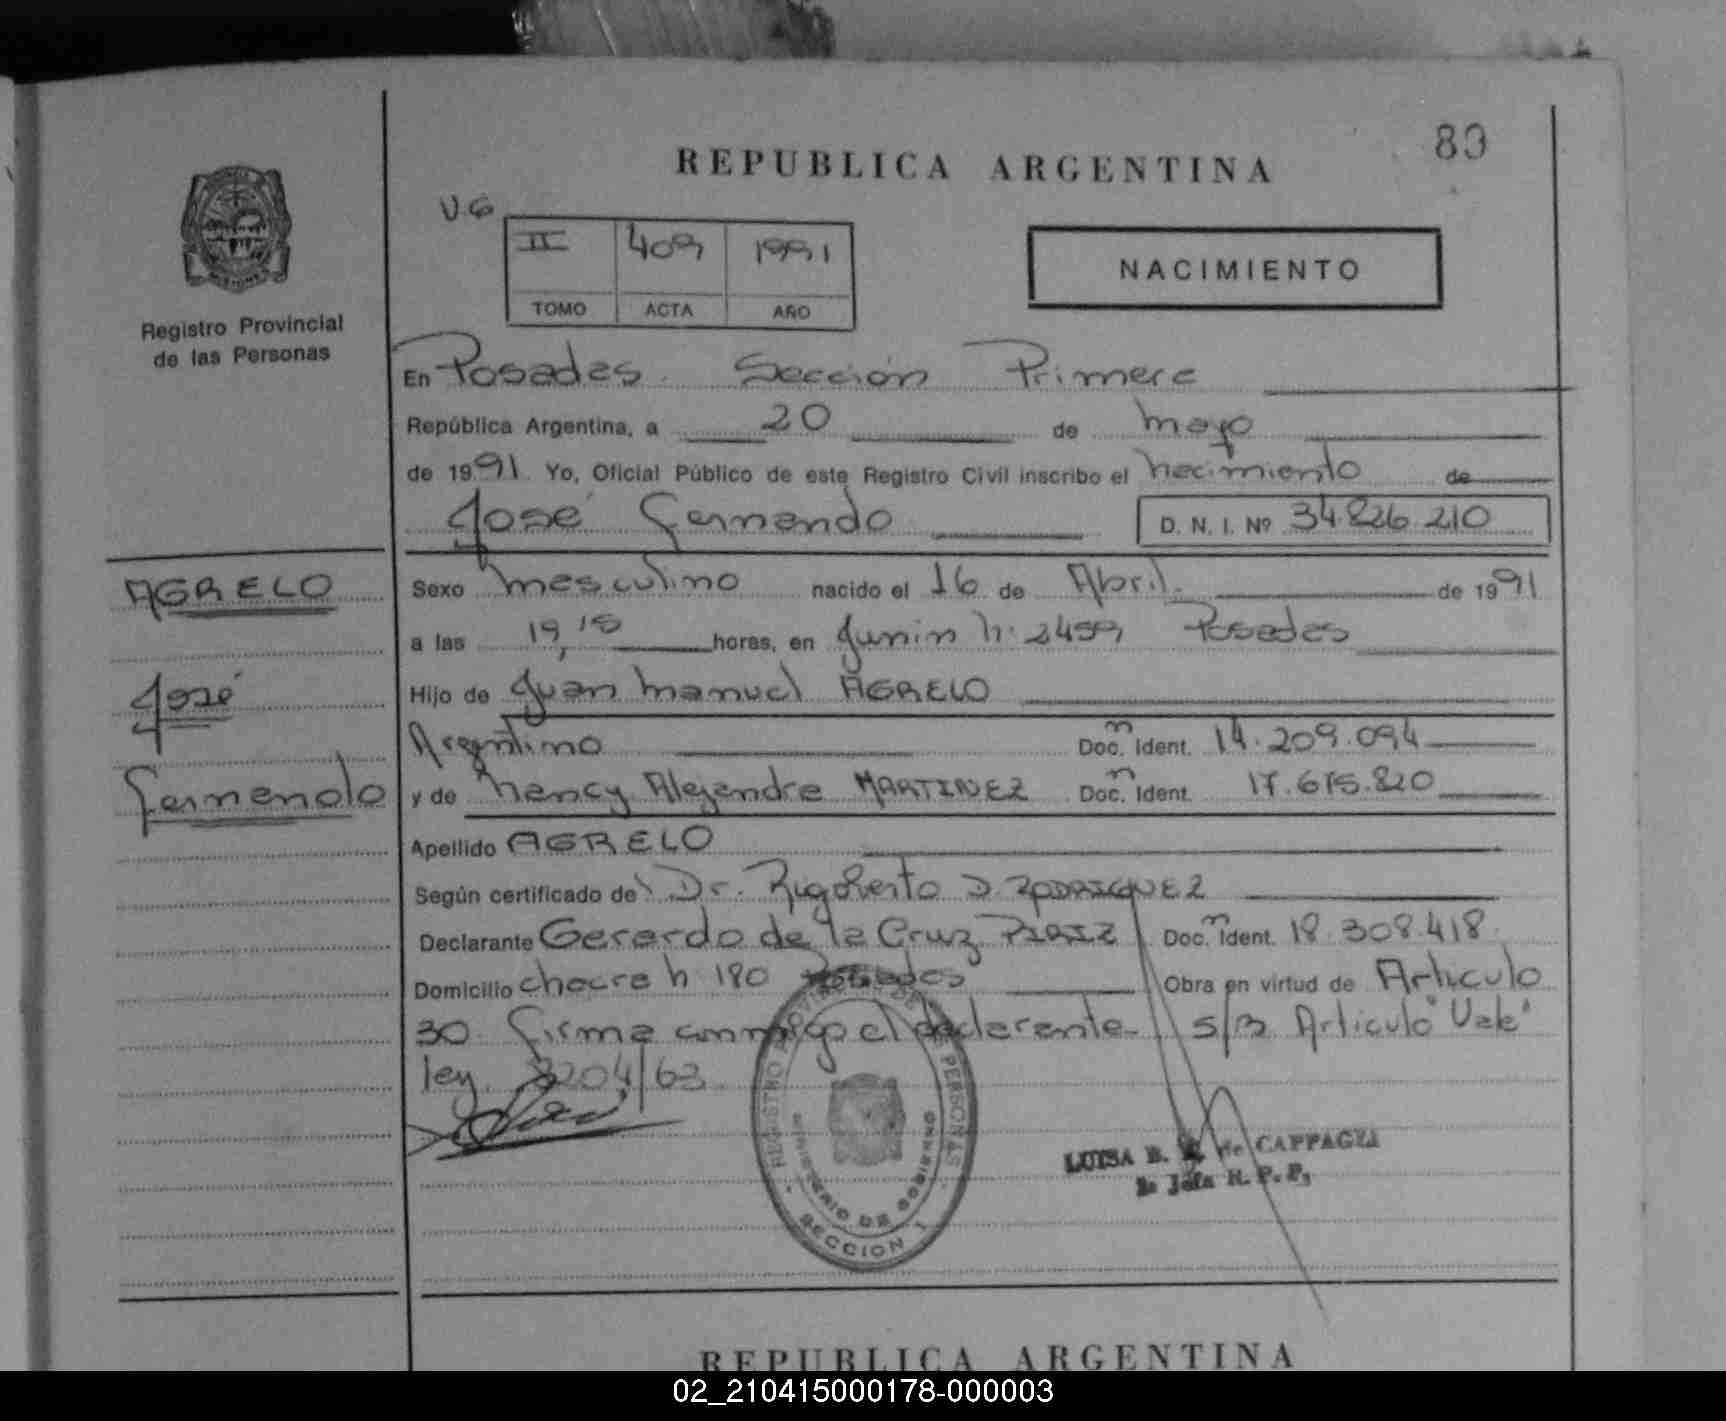 83
REPUBLICA ARGENTINA
V.G
II 409 1991
TOMO ACTA AÑO
NACIMIENTO
Registro Provincial
de las Personas
En Posadas. Sección Primera
República Argentina, a 20 de mayo
de 1991 Yo, Oficial Público de este Registro Civil inscribo el nacimiento de
José Fernando D. N. I. Nº 34.826.210
AGRELO
José
Fernando
Sexo masculino nacido el 16 de Abril. de 1991
a las 19,15 horas, en Junín n. 2459 Posadas
Hijo de Juan Manuel AGRELO
Argentino Doc. n Ident. 14.209.094
y de Nancy Alejandra MARTINEZ Doc. n Ident. 17.675.820
Apellido AGRELO
Según certificado del Dr. Rigoberto D. RODRIGUEZ
Declarante Gerardo de la Cruz PIRIZ Doc. n Ident. 18.308.418
Domicilio chacra n 180 Posadas Obra en virtud de Artículo
30. firma conmigo el declarante. S/B Artículo "Vale"
ley. 8204/63
REGISTRO PROVINCIAL DE LAS PERSONAS
MINISTERIO DE GOBIERNO
SECCION 1
LUISA B. de CAPPAGLI
2a Jefa R. P. P.
REPUBLICA ARGENTINA
02_210415000178-000003